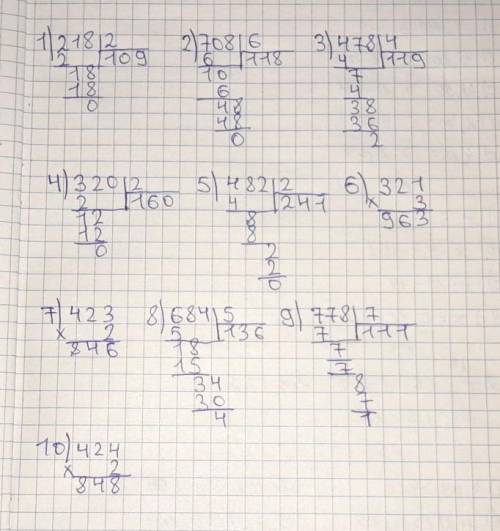 1) 218 | 2 2) 708 | 6 3) 478 | 4
2 | 109 6 | 118 4 | 119
18 10 7
18 6 4
0 48 38
48 36
0 2
4) 320 | 2 5) 482 | 2 6) 321
2 | 160 4 | 241 x 3
12 8 963
12 8
0 2
2
0
7) 423 8) 684 | 5 9) 778 | 7
x 2 5 | 136 7 | 111
846 18 7
15 7
34 8
30 7
4 1
10) 424
x 2
848